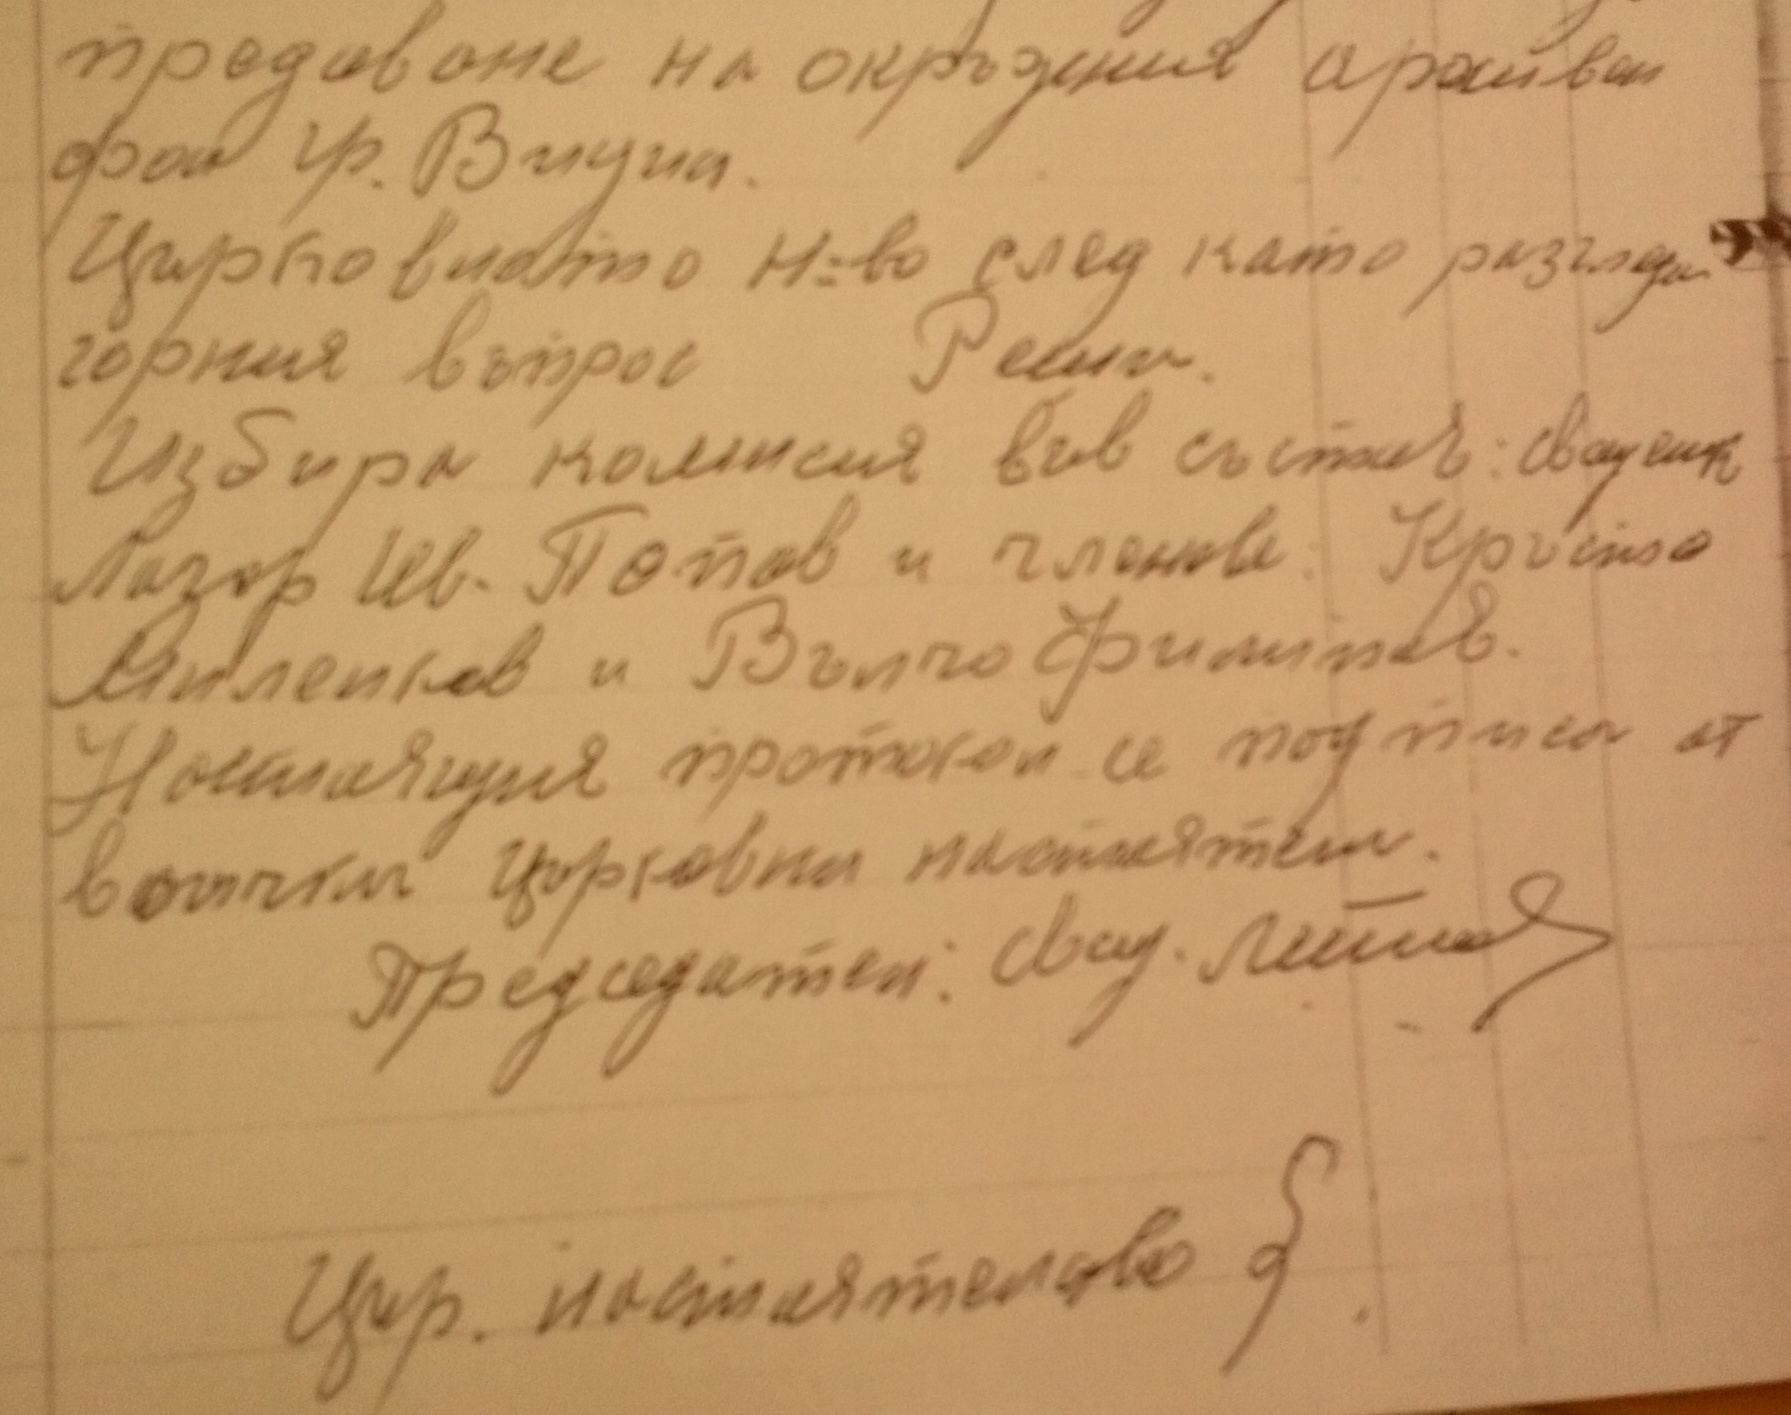 предаване на окръжния архивен
фон гр. Видин.
Църковното н-во след като разгледа
горния въпрос Реши.
Избира комисия във състав: свещеник
Лазар Ив. Попов и членове: Кръсто
Миленков и Вълчо Филипов.
Настоящия протокол се подписа от
всички църковни настоятели.
Председател: Свещ.
Цър. настоятелство